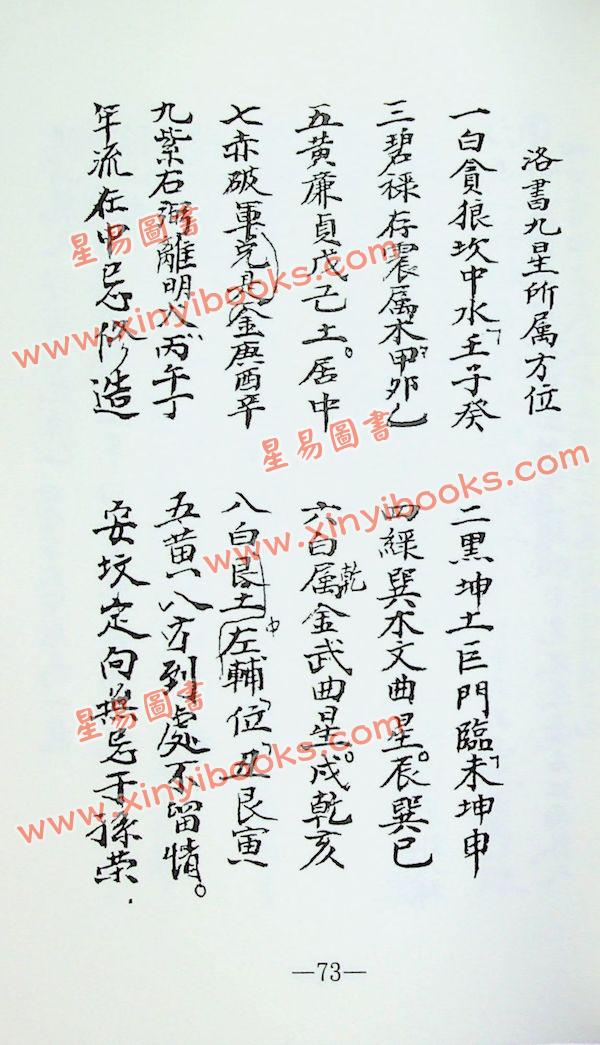 洛書九星所属方位
一白貪狼坎中水壬子癸
二黑坤土巨門臨未坤申
三碧祿存震属木甲卯乙
四緑巽木文曲星。辰巽巳
五黃廉貞戊己土。居中
六白属乾金武曲星。戌乾亥
七赤破軍兌是金庚酉辛
八白艮土中左輔位丑艮寅
九紫右弼離明火丙午丁
五黃八方到處不留情。
年流在中忌修造
安坟定向無忌子孫荣.
—73—
星易圖書
www.xinyibooks.com
星易圖書
www.xinyibooks.com
星易圖書
www.xinyibooks.com